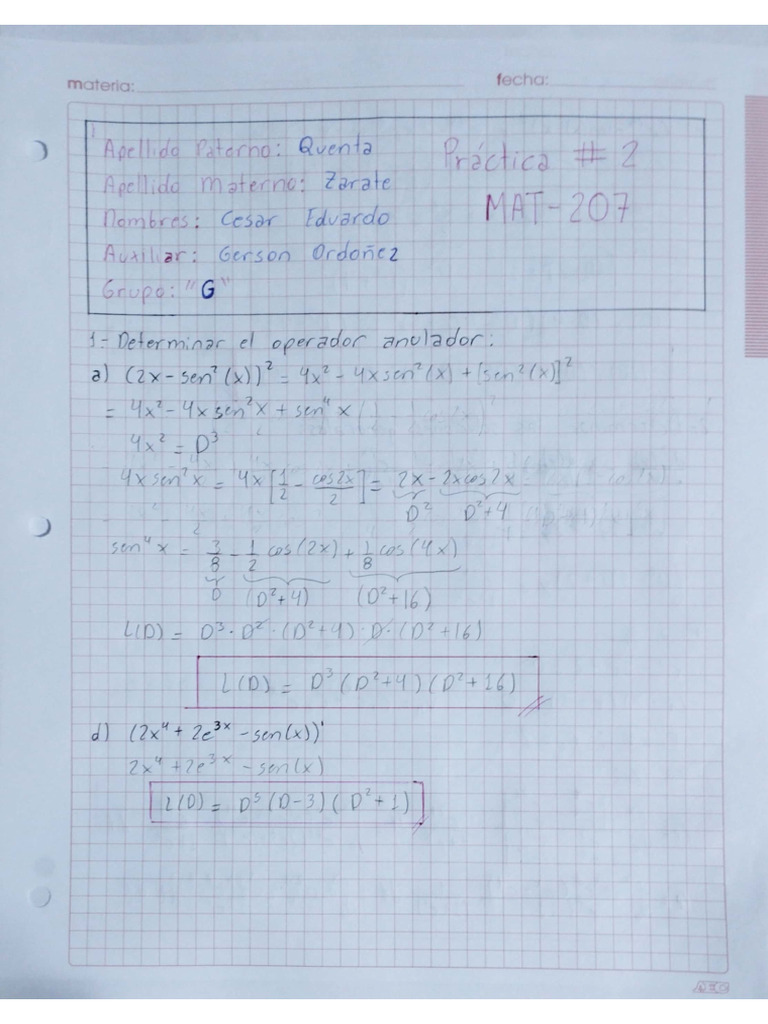 materia: fecha:
Apellido Paterno: Quenta
Práctica # 2
Apellido Materno: Zarate
MAT-207
Nombres: Cesar Eduardo
Auxiliar: Gerson Ordoñez
Grupo: "G"
1- Determinar el operador anulador:
a) (2x - sen²(x))² = 4x² - 4x sen²(x) + [sen²(x)]²
= 4x² - 4x sen²x + sen⁴x
4x² = D³
4x sen²x = 4x[1/2 - cos2x/2] = 2x - 2x cos2x
D² D²+4
sen⁴x = 3/8 - 1/2 cos(2x) + 1/8 cos(4x)
D (D²+4) (D²+16)
L(D) = D³ · D² · (D²+4) · D · (D²+16)
L(D) = D³ (D²+4) (D²+16)
d) (2x⁴ + 2e³ˣ - sen(x))'
2x⁴ + 2e³ˣ - sen(x)
L(D) = D⁵ (D-3) (D²+1)